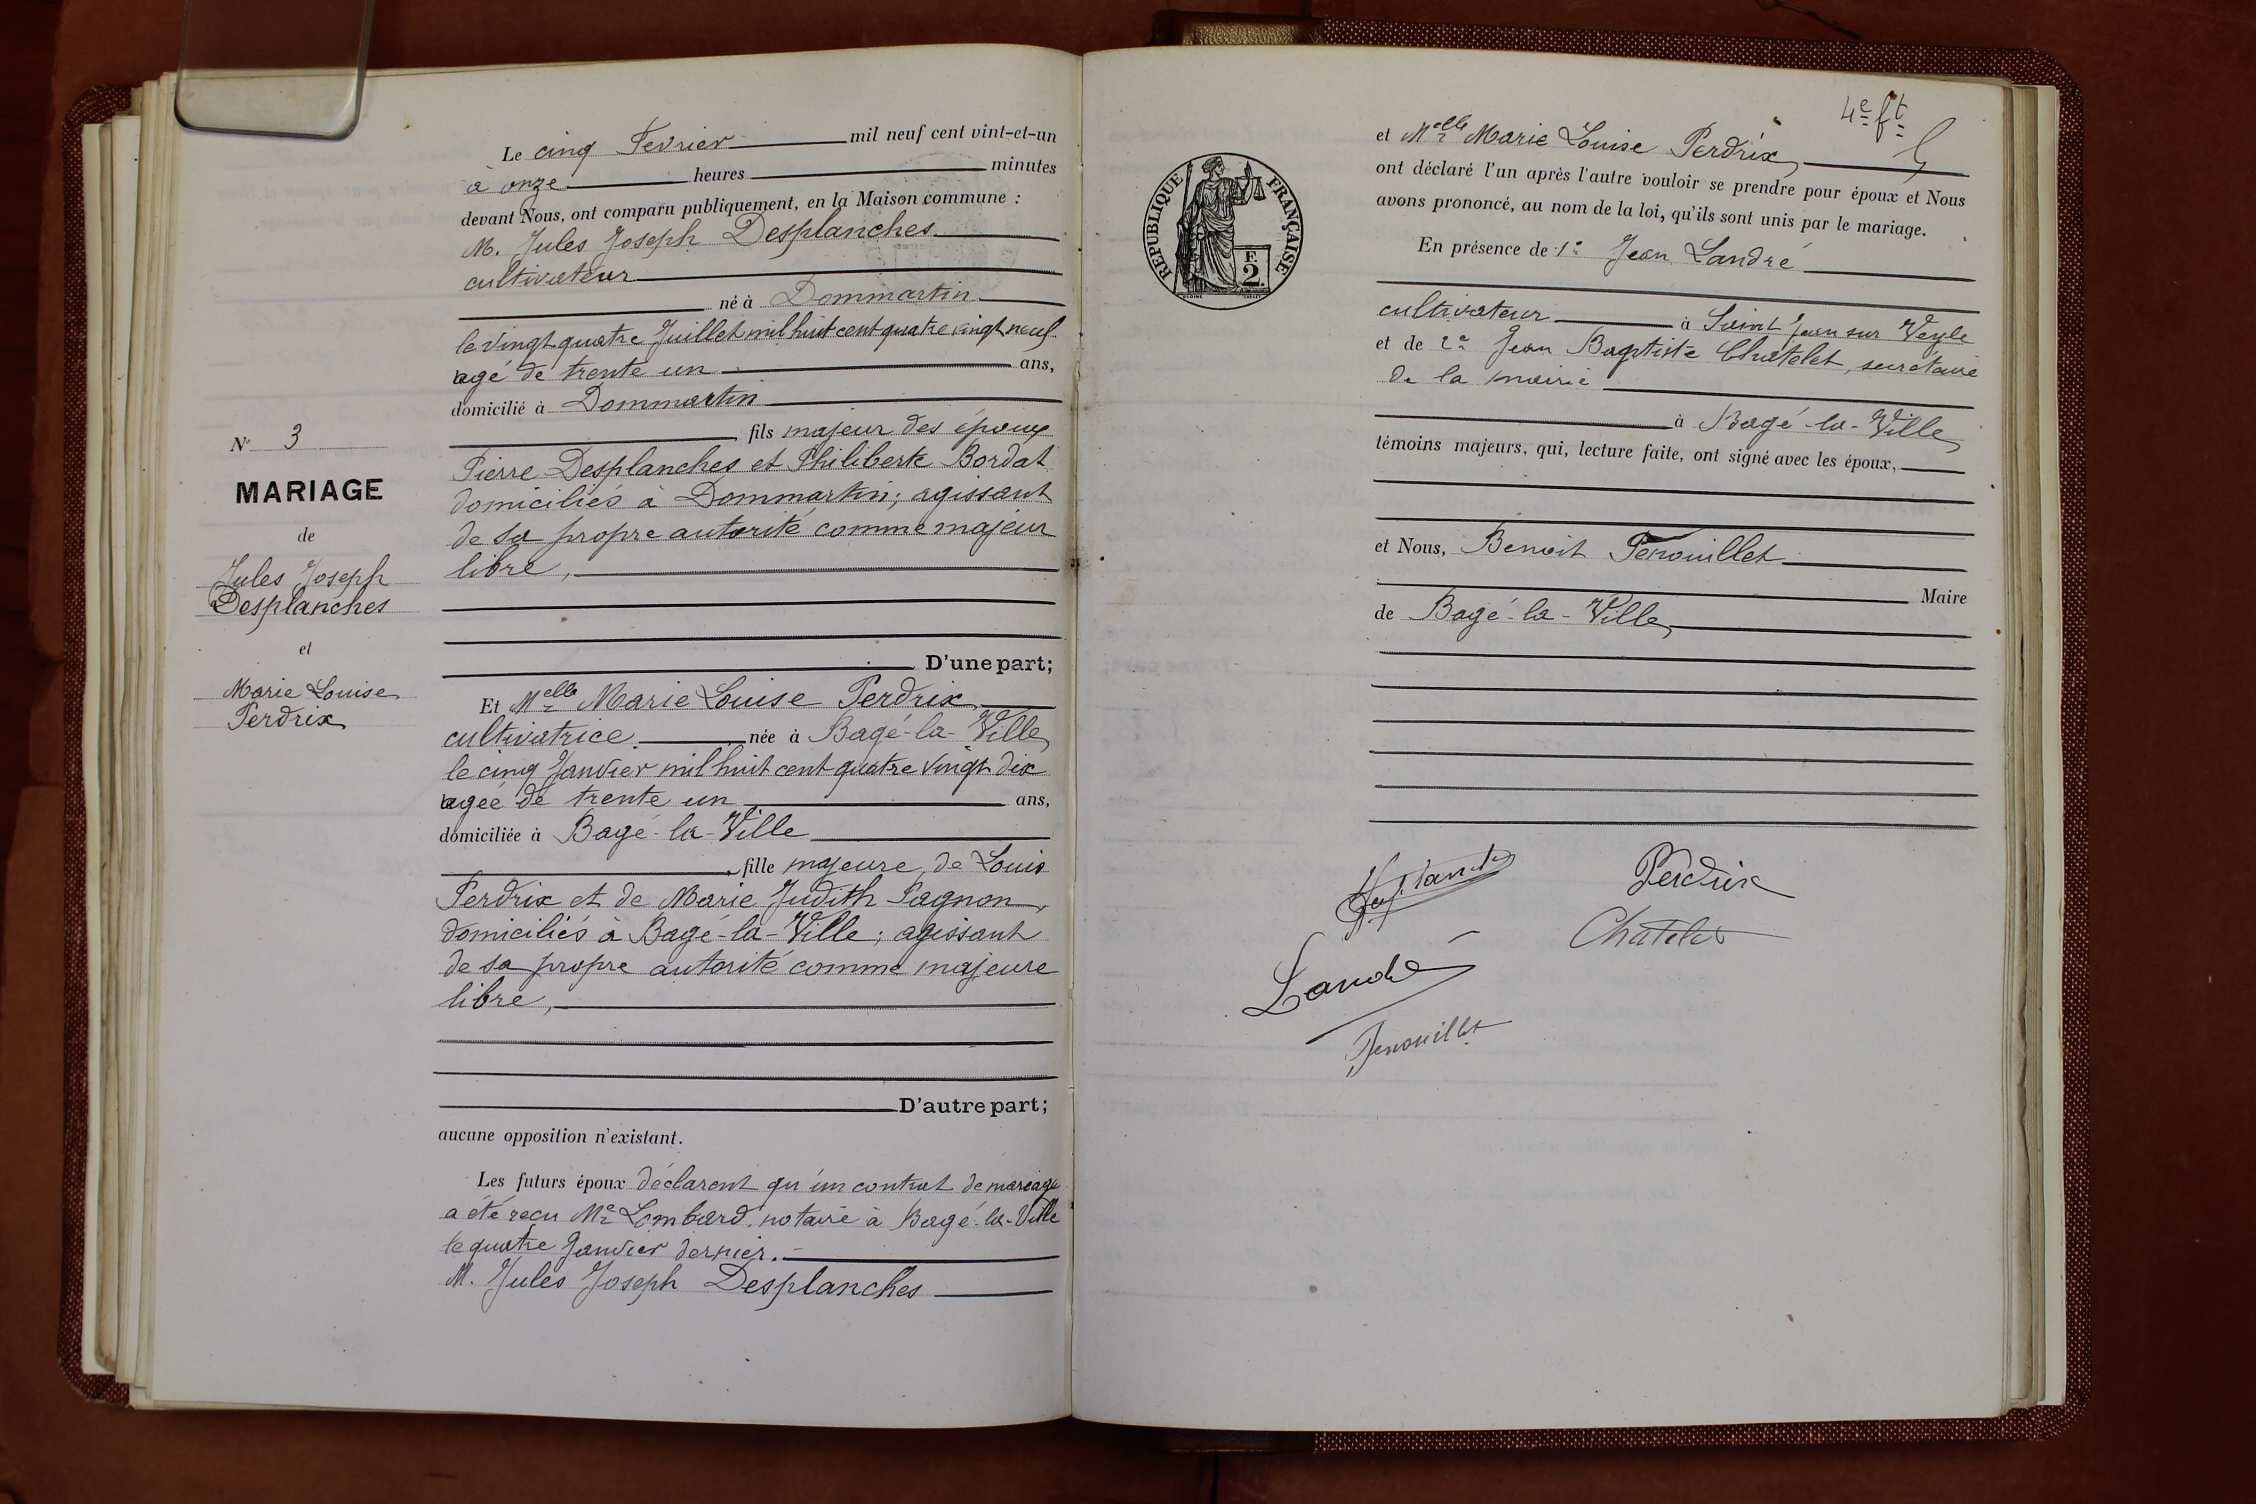 Le cinq Fevrier mil neuf cent vint-et-un
à onze heures minutes
devant Nous, ont comparu publiquement, en la Maison commune :
M. Jules Joseph Desplanches
cultivateur
né à Dommartin
le vingt quatre Juillet mil huit cent quatre vingt neuf
agé de trente un ans,
domicilié à Dommartin
fils majeur des époux
Pierre Desplanches et Philiberte Bordat
domiciliés à Dommartin; agissant
de sa propre autorité comme majeur
libre,
D'une part;
Et Melle Marie Louise Perdrix
cultivatrice née à Bagé-la-Ville
le cinq Janvier mil huit cent quatre vingt dix
agée de trente un ans,
domiciliée à Bagé-la-Ville
fille majeure de Louis
Perdrix et de Marie Judith Pagnon,
domiciliés à Bagé-la-Ville; agissant
de sa propre autorité comme majeure
libre,
D'autre part;
aucune opposition n'existant.
Les futurs époux déclarent qu'un contrat de mariage
a été reçu Me Lombard, notaire à Bagé-la-Ville
le quatre Janvier dernier.
M. Jules Joseph Desplanches
N° 3
MARIAGE
de
Jules Joseph
Desplanches
et
Marie Louise
Perdrix
4e ft
et Melle Marie Louise Perdrix
ont déclaré l'un après l'autre vouloir se prendre pour époux et Nous
avons prononcé, au nom de la loi, qu'ils sont unis par le mariage.
En présence de 1° Jean Landré
cultivateur à Saint Jean sur Veyle
et de 2° Jean Baptiste Chatelet, secrétaire
de la mairie
à Bagé-la-Ville
témoins majeurs, qui, lecture faite, ont signé avec les époux,
et Nous, Benoit Penouillet
Maire
de Bagé-la-Ville
RÉPUBLIQUE FRANÇAISE
F.
2.
Perdrix
Chatelet
Landré
Penouillet